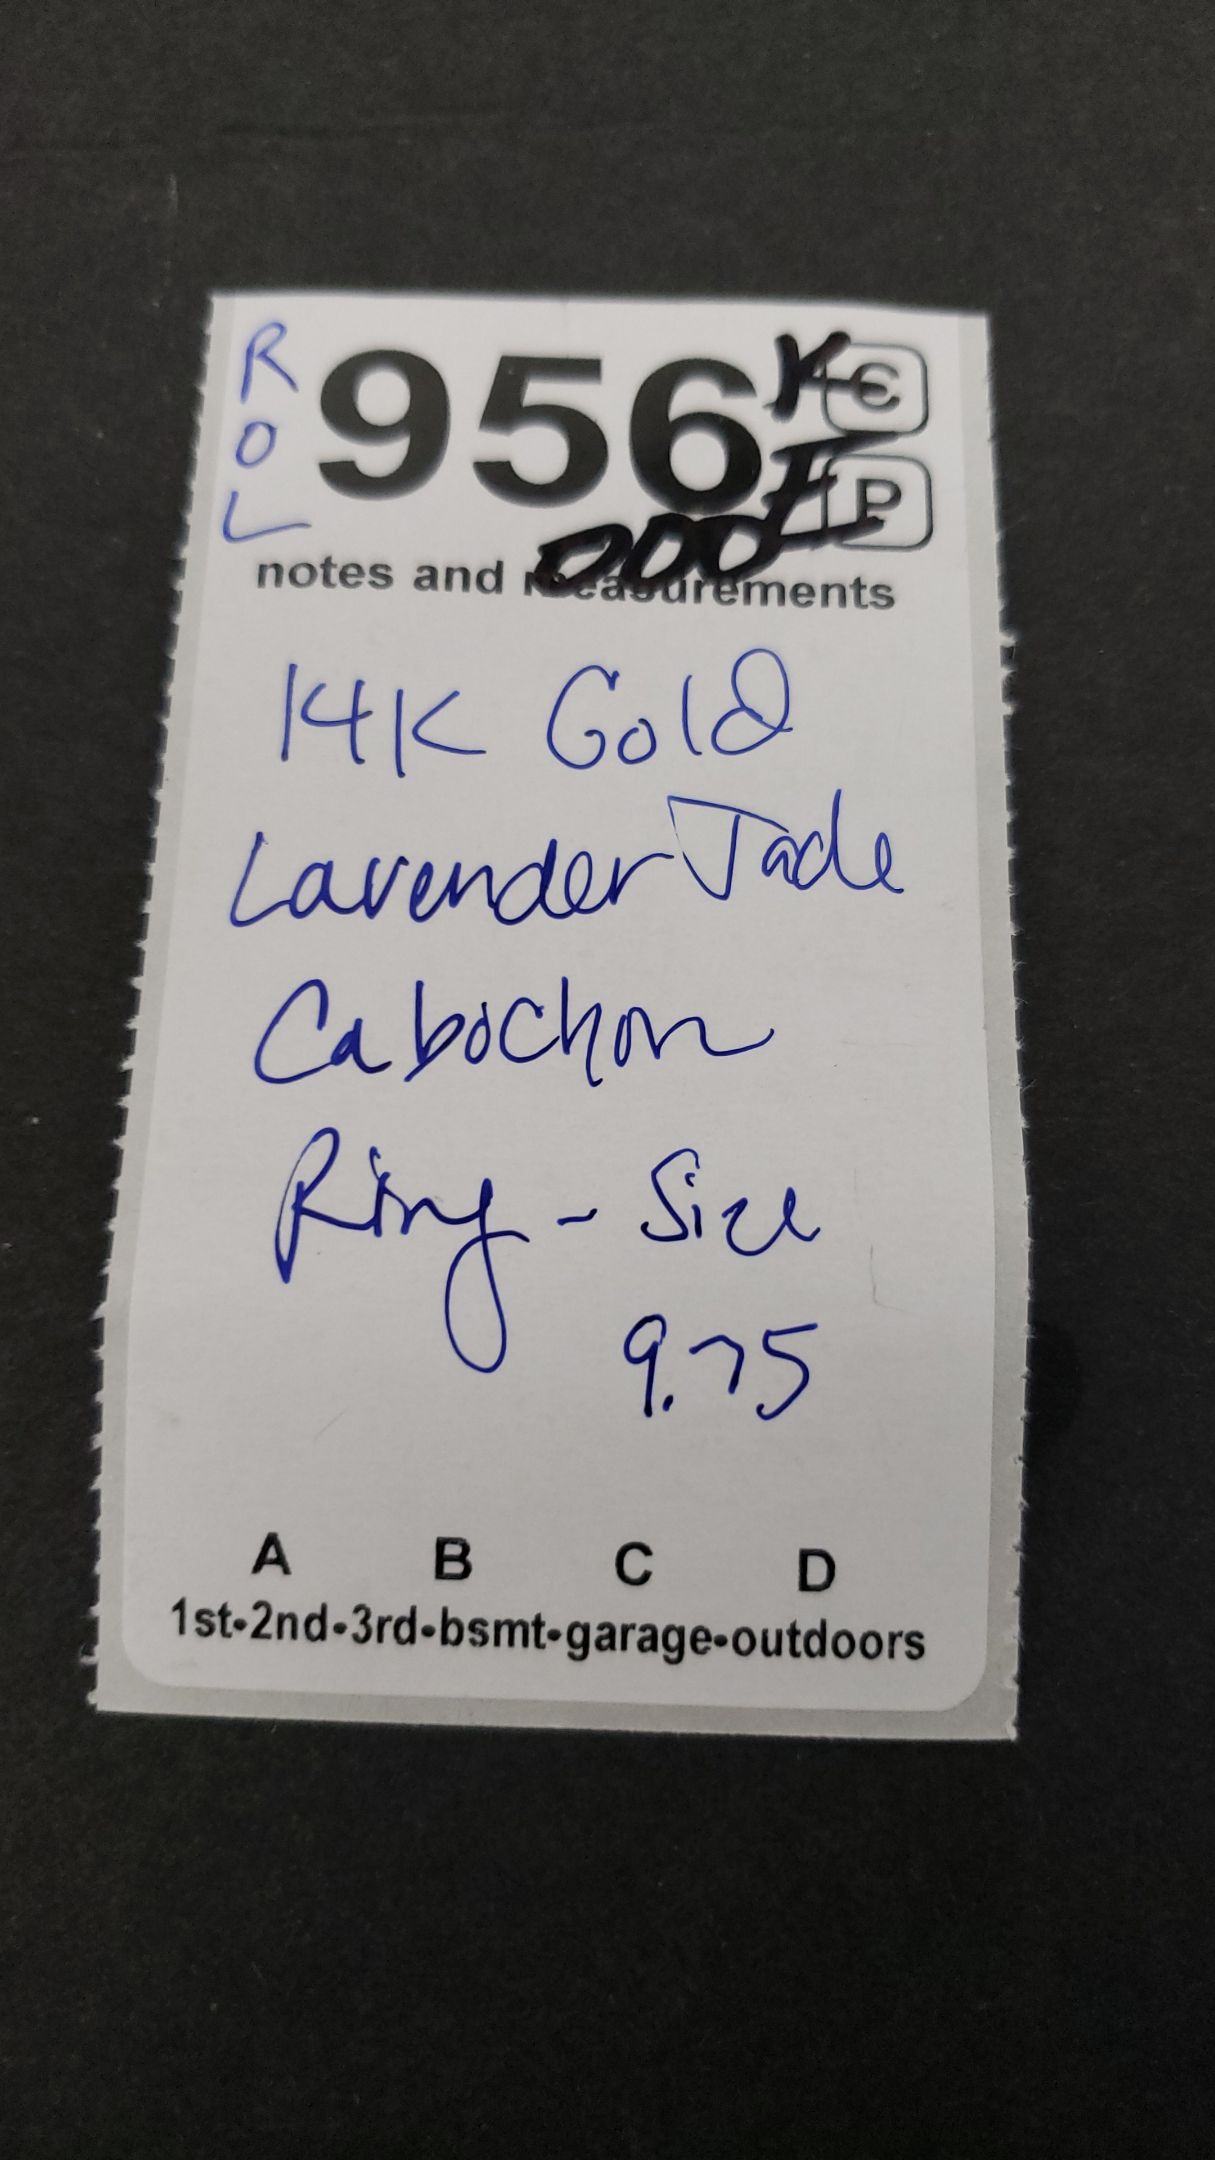 ROL
956
C
P
notes and measurements
14K Gold
Lavender Jade
Cabochon
Ring - Size
9.75
A B C D
1st•2nd•3rd•bsmt•garage•outdoors